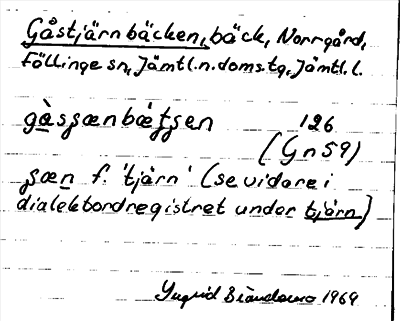 Gåstjärnbäcken, bäck, Norrgård,
Föllinge sn, Jämtl.n.doms.tg, Jämtl.l.
126
(Gn59)
f. 'tjärn' (se vidare i
dialektordregistret under tjärn)
Yngrid 1969